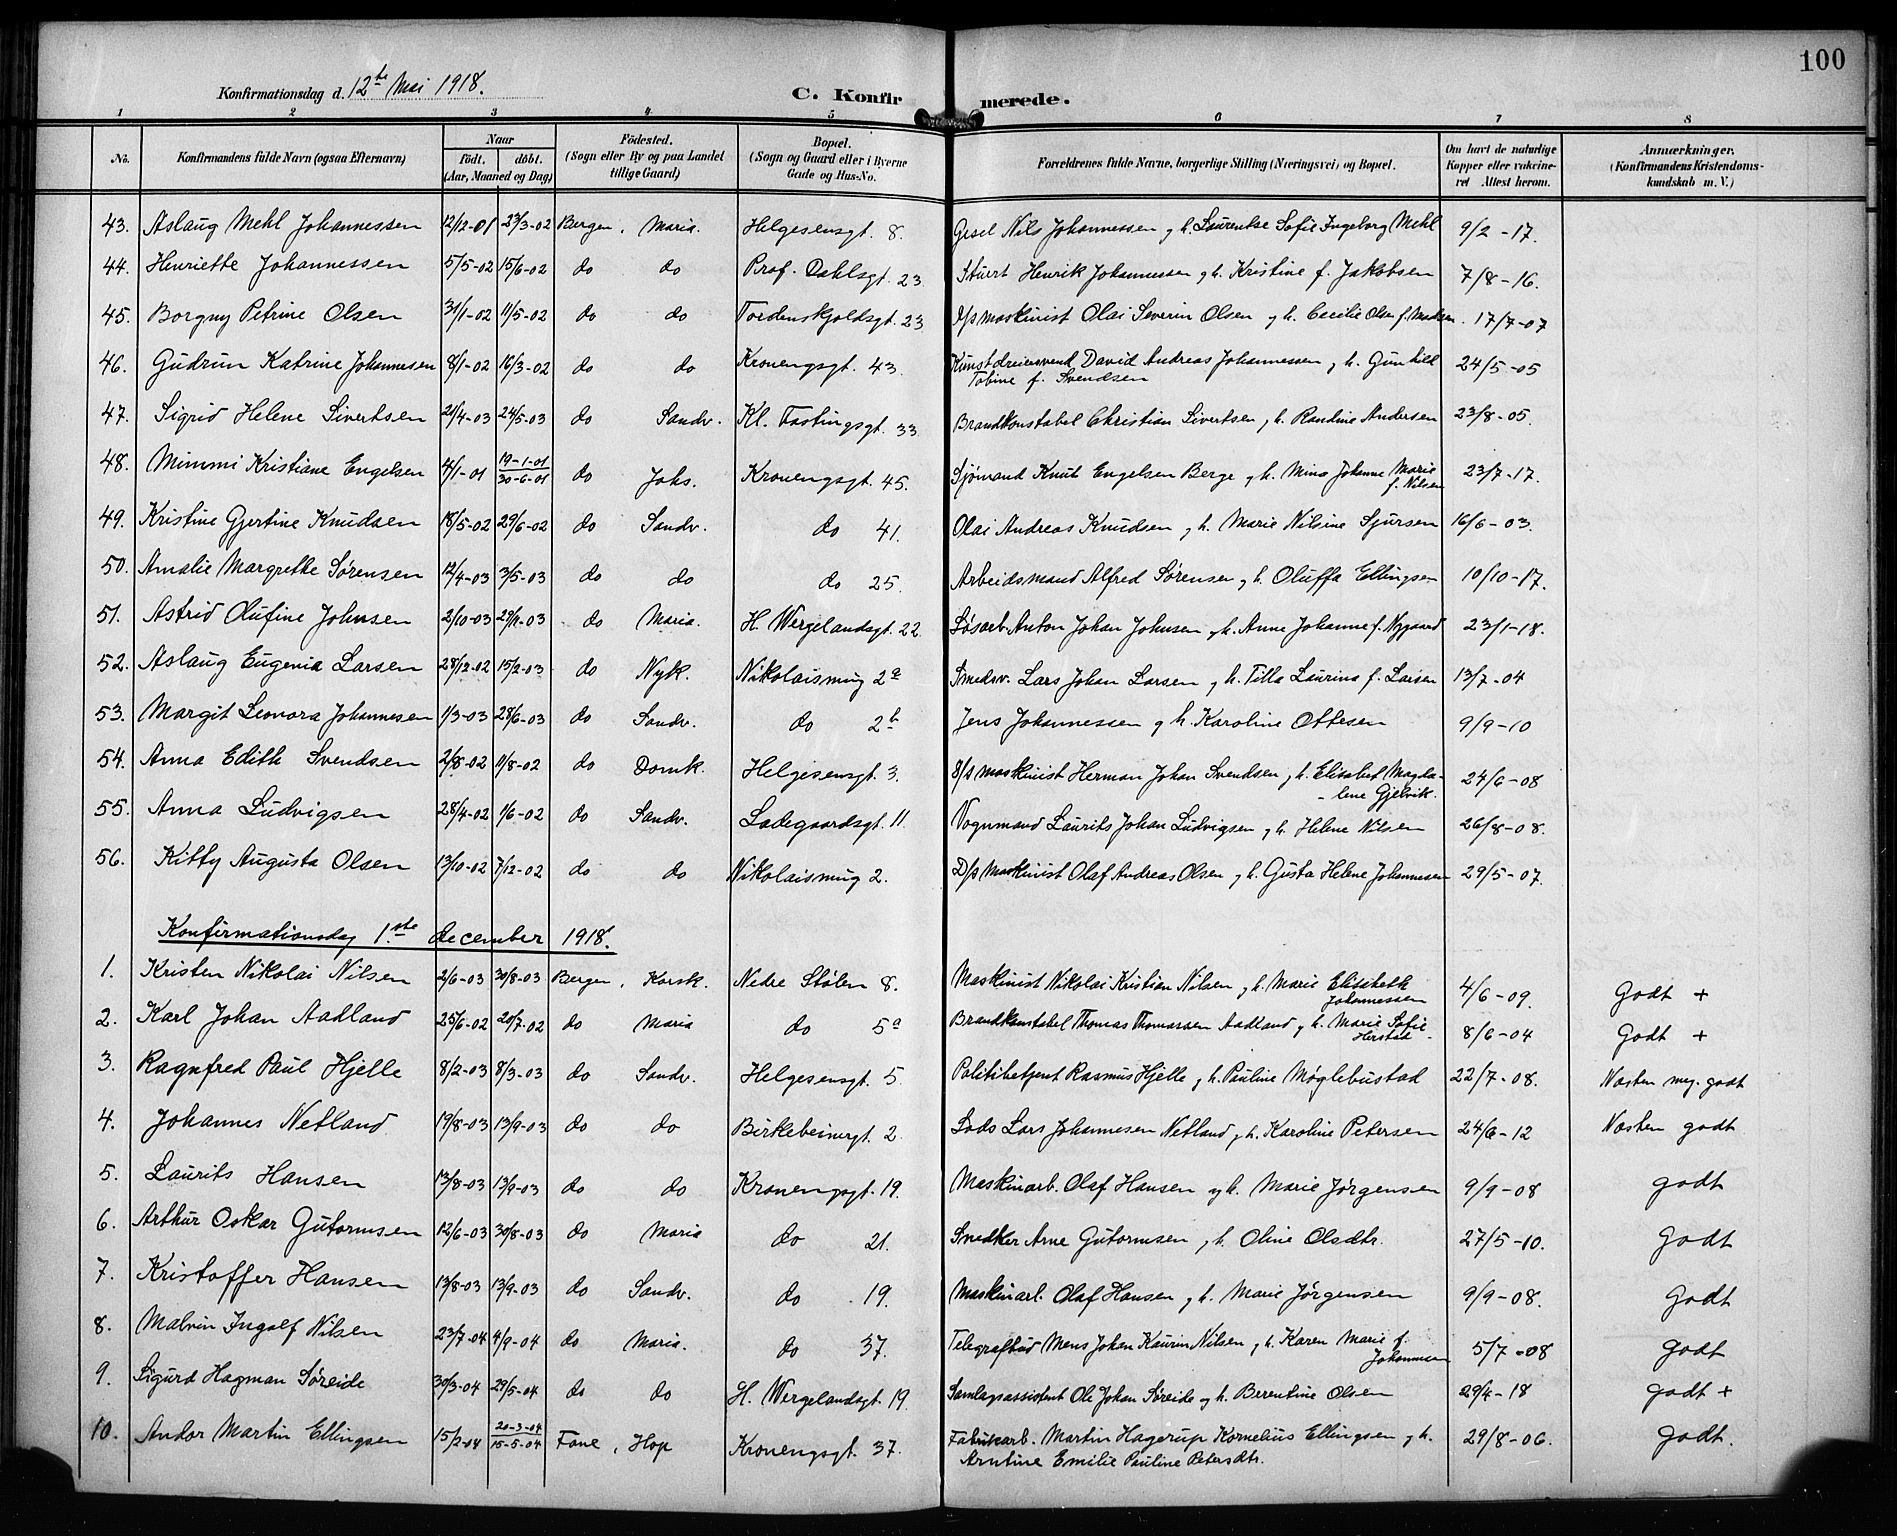 100
Konfirmationsdag d. 12te Mai 1918.
C. Konfirmerede.
1 2 3 4 5 6 7 8
No. Konfirmandens fulde Navn (ogsaa Efternavn) Naar født. døbt. (Aar, Maaned og Dag) Födested. (Sogn eller By og paa Landet tillige Gaard) Bopæl. (Sogn og Gaard eller i Byerne Gade og Hus-No. Forældrenes fulde Navne, borgerlige Stilling (Næringsvei) og Bopæl. Om havt de naturlige Kopper eller vakcineret Attest herom. Anmærkninger. (Konfirmandens Kristendomskundskab m. V.)
43. Aslaug Mehl Johannessen 12/12-01 23/3-02 Bergen, Maria. Helgesensgt. 8. Gesel Nils Johannessen og h. Laurentse Sofie Ingeborg Mehl 9/2-17.
44. Henriette Johannessen 5/5-02 15/6-02 do do Prof. Dahlsgt. 23 Stuert Henrik Johannessen og h. Kristine f. Jakobsen 7/8-16.
45. Borgny Petrine Olsen 31/1-02 11/5-02 do do Tordenskjoldsgt. 23 D/s maskinist Olai Severin Olsen og h. Cecilie Olsen f. Madsen. 17/7-07
46. Gudrun Katrine Johannesen 8/1-02 16/3-02 do do Kronengsgt. 43. Kunstdreiersvend David Andreas Johannessen og h. Gunhild
Tobine f. Svendsen 24/5-05
47. Sigrid Helene Sivertsen 21/4-03 24/5-03 do Sandv. Kl. Fastingsgt. 33 Brandkonstabel Christian Sivertsen og h. Randine Andersen 23/8-05.
48. Mimmi Kristiane Engelsen 4/1-01 19-1-01
30-6-01 do Johs. Kronengsgt. 45. Sjømand Knut Engelsen Berge og h. Mina Johanne Marie
f. Nilsen 23/7-17.
49. Kristine Gjertine Knudsen 18/5-02 29/6-02 do Sandv. do 41. Olai Andreas Knudsen og h. Marie Nilsine Sjursen 16/6-03.
50. Amalie Margrethe Sørensen 12/4-03 3/5-03 do do do 25. Arbeidsmand Alfred Sørensen og h. Oluffa Ellingsen 10/10-17.
51. Astrid Olufine Johnsen 2/10-03 29/11-03 do Maria. H. Wergelandsgt. 22 Løsarb. Anton Johan Johnsen og h. Anne Johanne f. Nygaard 23/1-18.
52. Aslaug Eugenia Larsen 28/12-02 15/2-03 do Nyk. Nikolaismug 2a Smedsv. Lars Johan Larsen og h. Tilla Laurina f. Larsen 13/7-04
53. Margit Leonora Johannesen 1/3-03 28/6-03 do Sandv. do 2b Jens Johannessen og h. Karoline Ottesen 9/9-10
54. Anna Edith Svendsen 2/8-02 11/8-02 do Domk. Helgesensgt. 3. S/s maskinist Herman Johan Svendsen og h. Elisabet Magda-
lene Gjelvik. 24/6-08
55. Anna Ludvigsen 28/4-02 1/6-02 do Sandv. Ladegaardsgt. 11. Vognmand Laurits Johan Ludvigsen og h. Helene Nilsen 26/8-08.
56. Kitty Augusta Olsen 13/10-02 7/12-02 do do Nikolaismug 2. D/s Maskinist Olaf Andreas Olsen og h. Gusta Helene Johannesen 29/5-07.
Konfirmationsdag 1.ste december 1918.
1. Kristen Nikolai Nilsen 2/6-03 30/8-03 Bergen, Korsk. Nedre Stølen 8. Maskinist Nikolai Kristian Nilsen og h. Marie Elisabeth
Johannessen 4/6-09. Godt +
2. Karl Johan Aadland 25/6-02 20/7-02 do Maria do 5a Brandkonstabel Thomas Thomassen Aadland og h. Marie Sofie
Herstad 8/6-04 Godt +
3. Ragnfred Paul Hjelle 8/2-03 8/3-03 do Sandv. Helgesensgt. 5. Politibetjent Rasmus Hjelle og h. Pauline Møglebustad 22/7-08. Næsten meg. godt
4. Johannes Netland 19/8-03 13/9-03 do do Birkebeinergt. 2. Lods Lars Johannesen Netland og h. Karoline Petersen 24/6-12 Næsten godt
5. Laurits Hansen 13/8-03 13/9-03 do do Kronengsgt. 19. Maskinarb. Olaf Hansen og h. Marie Jørgensen 9/9-08 godt
6. Arthur Oskar Gutormsen 12/6-03 30/8-03 do Maria do 21. Snedker Arne Gutormsen og h. Oline Olsdtr. 27/5-10. Godt
7. Kristoffer Hansen 13/8-03 13/9-03 do Sandv. do 19. Maskinarb. Olaf Hansen og h. Marie Jørgensen 9/9-08. Godt
8. Malvin Ingolf Nilsen 23/7-04 4/9-04 do Maria. do 37. Telegrafbud Mons Johan Kaurin Nilsen og h. Karen Marie f.
Johannesen 5/7-08 godt
9. Sigurd Hagman Søreide 30/3-04 29/5-04 do do H. Wergelandsgt. 19. Samlagsassistent Ole Johan Søreide og h. Berentine Olsen 29/4-18 godt +
10. Andor Martin Ellingsen 15/2-04 20-3-04
15-5-04 Fane, Hop Kronengsgt. 37. Fabrikarb. Martin Hagerup Kornelius Ellingsen og h.
Arntine Emilie Pauline Petersdtr. 29/8-06. godt.